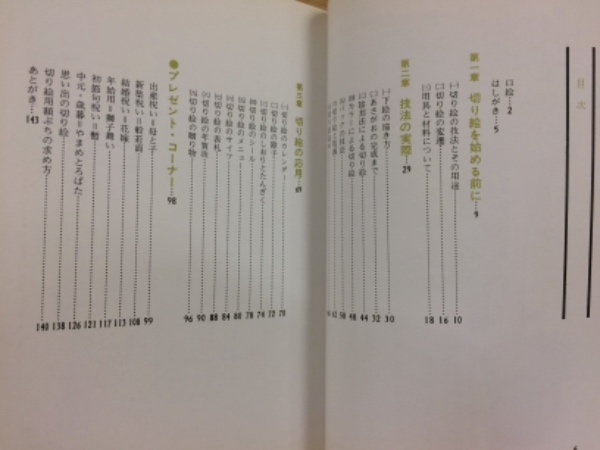 目次
口絵…2
はしがき…5
第一章 切り絵を始める前に…9
㈠切り絵の技法とその用途……10
㈡切り絵の変遷……16
㈢用具と材料について……18
第二章 技法の実際…29
㈠下絵の描き方……30
㈡あさがおの完成まで……32
44
48
58
62
第三章 切り絵の応用…69
㈠切り絵のカレンダー……70
㈡切り絵の扇子……72
㈢切り絵のしおりとたんざく……74
切り絵のシール……78
切り絵のメニュー……80
切り絵のサイン……84
切り絵の表札……88
切り絵の年賀状……90
切り絵の贈り物……96
●プレゼント・コーナー…98
出産祝い=母と子……99
新築祝い=般若面……108
結婚祝い=花嫁……113
年始用=獅子舞い……117
初節句祝い=鯉……121
中元・歳暮=やまめとろばた……126
思い出の切り絵……138
切り絵用額ぶちの求め方……140
あとがき…143